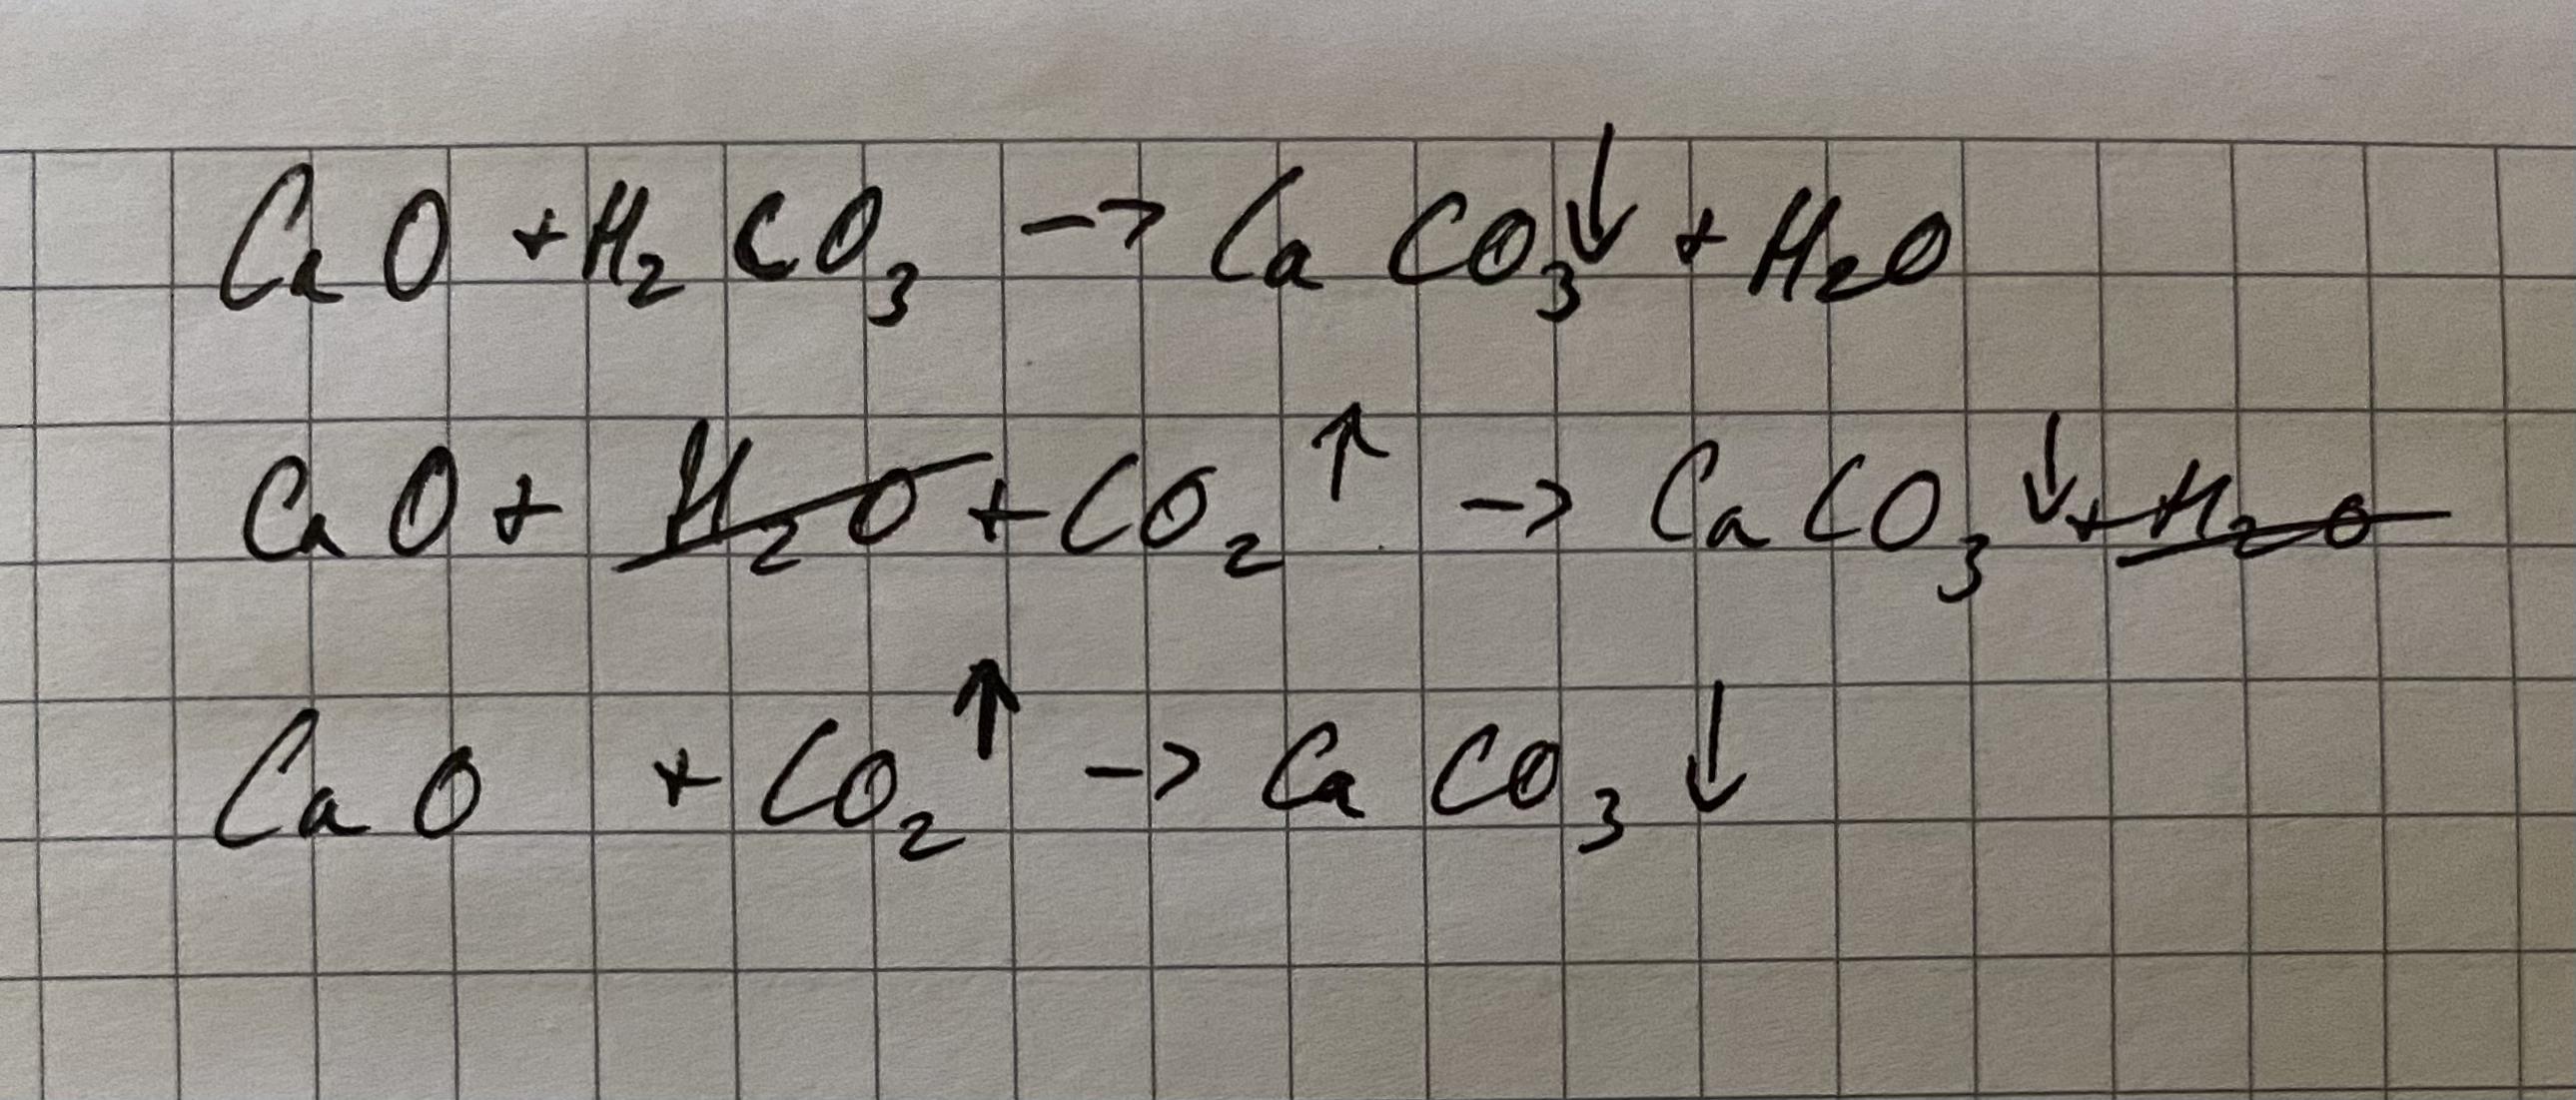 CaO + H₂CO₃ -> CaCO₃↓ + H₂O
CaO + H₂O + CO₂↑ -> CaCO₃↓ + H₂O
CaO + CO₂↑ -> CaCO₃↓